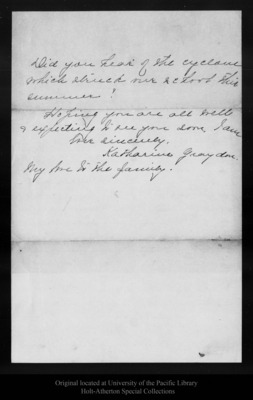 Did you hear of the cyclone
which struck our school this
summer!
Hoping you are all well
& expecting to see you soon, I am
Ever sincerely,
Katharine Graydon
My love to the family.
Original located at University of the Pacific Library
Holt-Atherton Special Collections